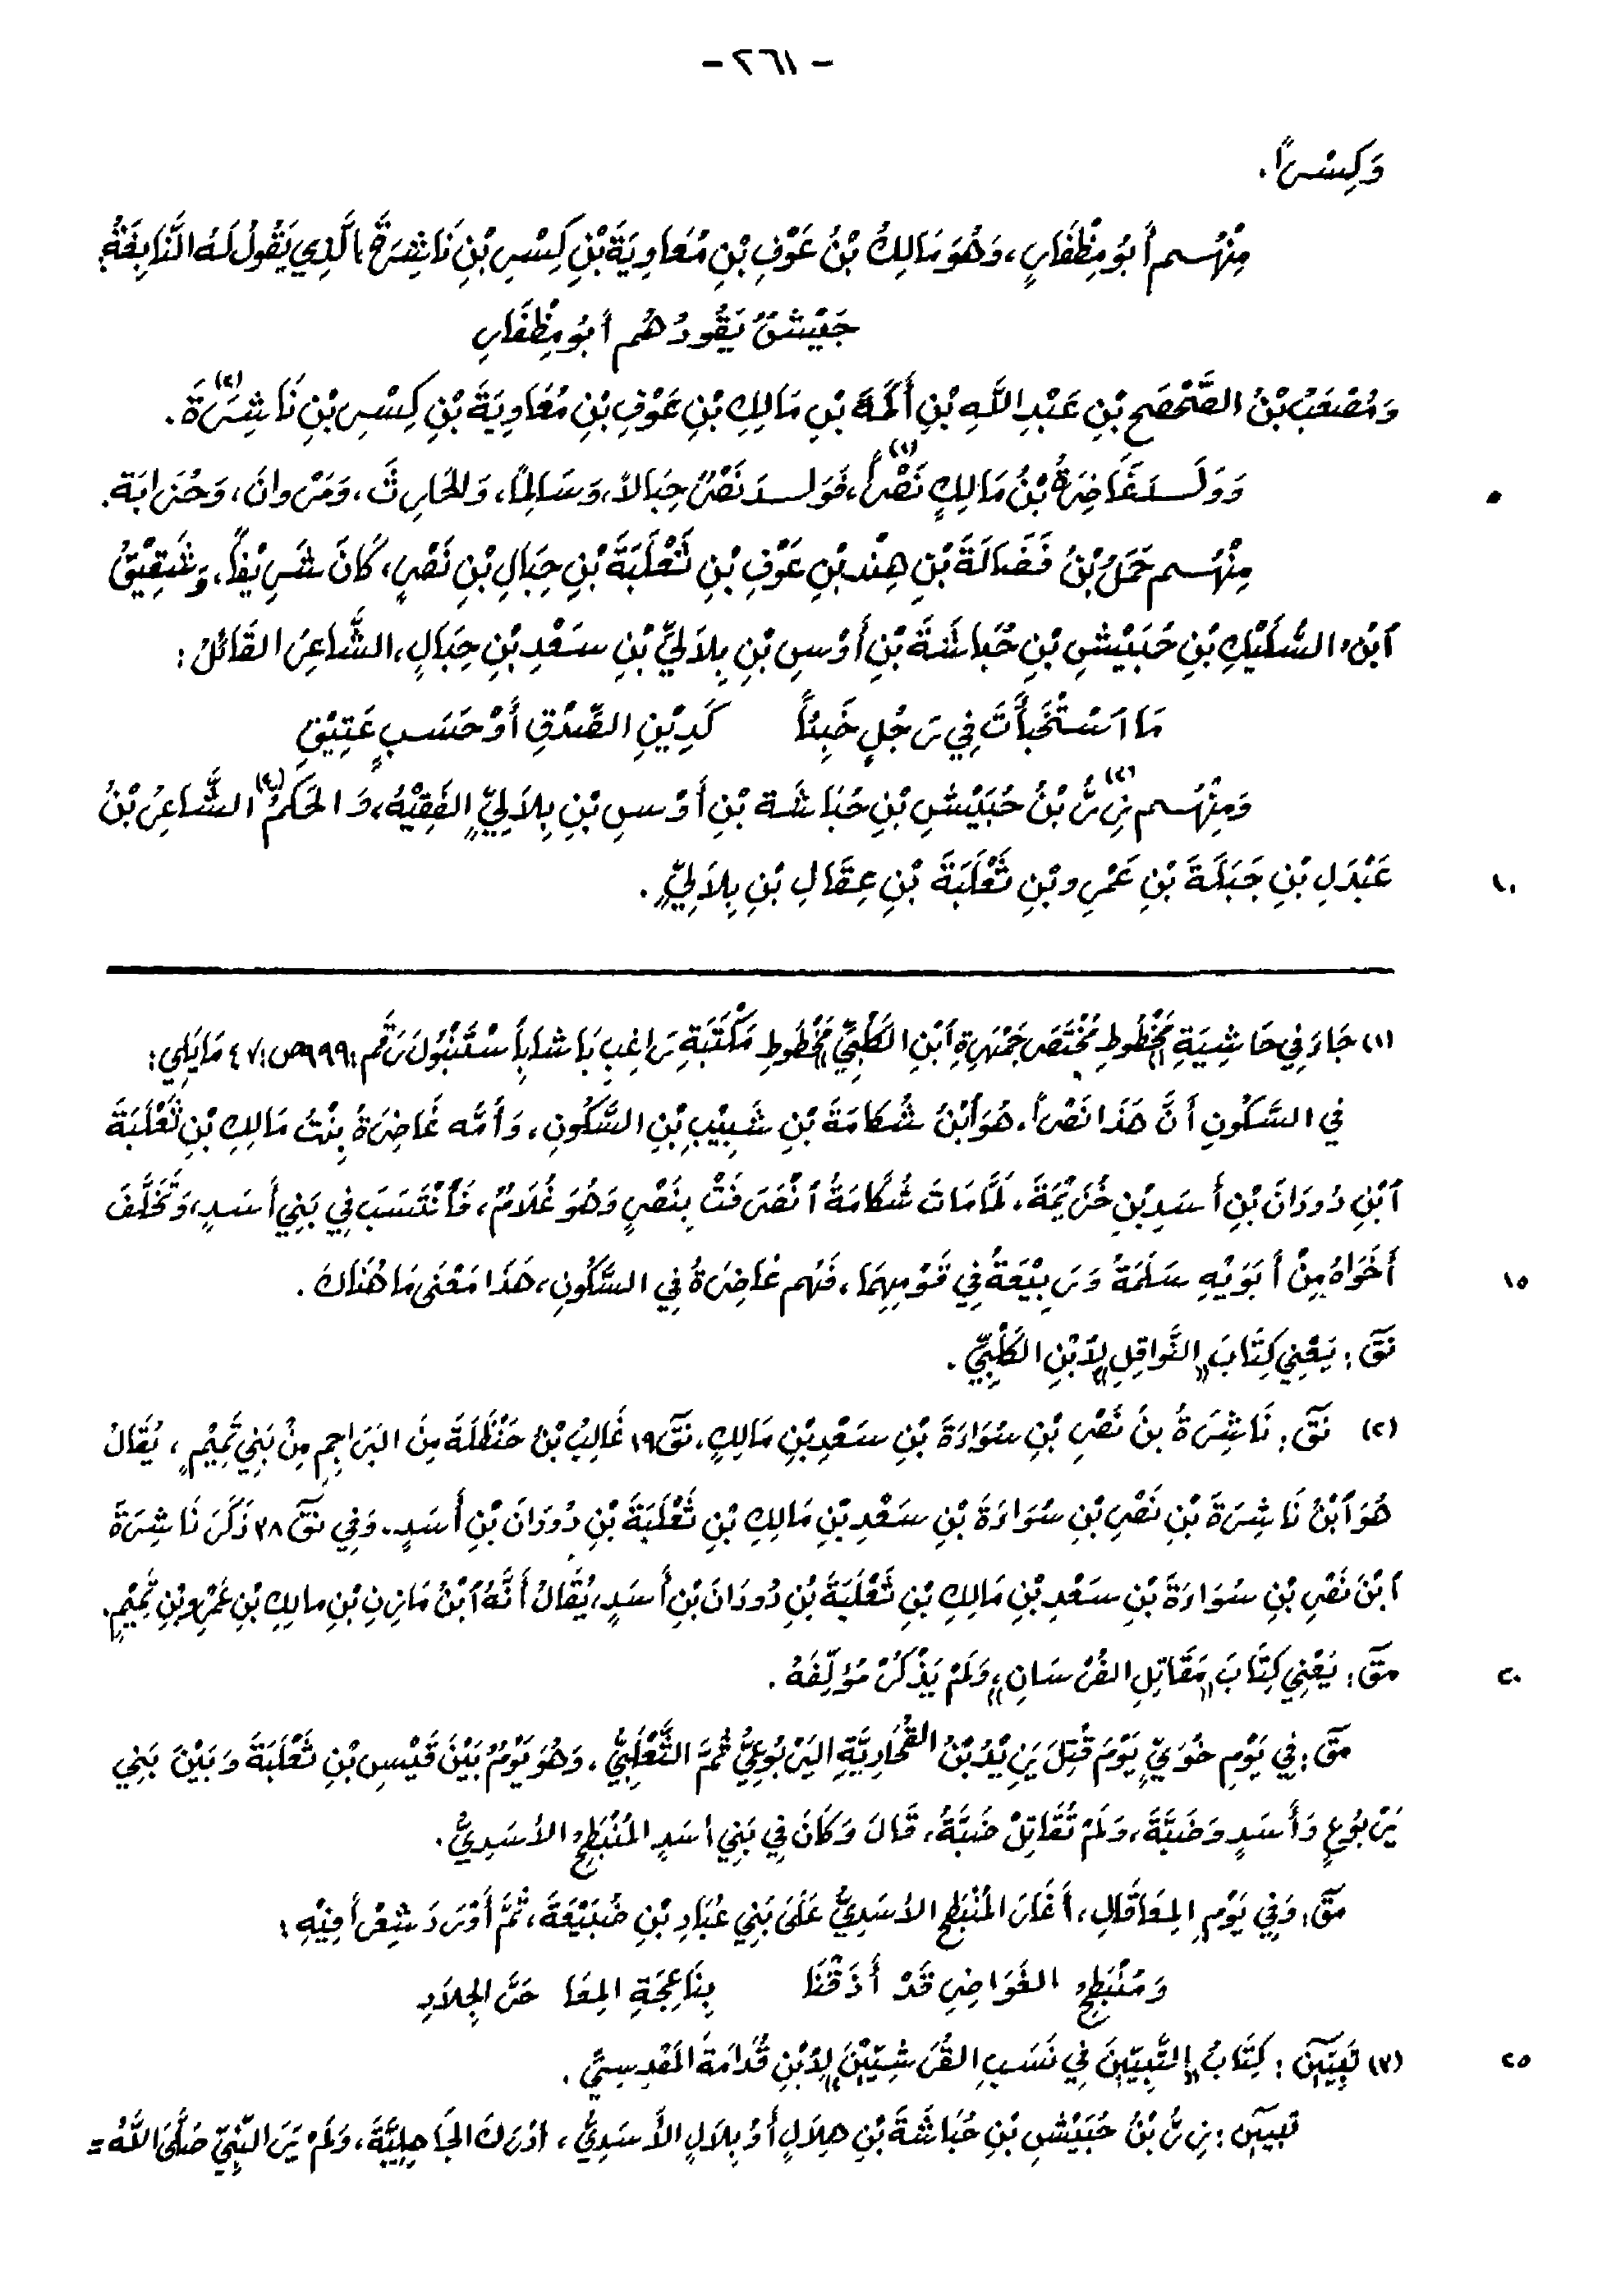 - ٢٦١ -
وَكِسْراً.
مِنْهُم أَبُو مِظْفَارٍ، وَهُوَ مَالِكُ بْنُ عَوْفِ بْنِ مُعَاوِيَةَ بْنِ كِسْرِ بْنِ نَاشِرَةَ الَّذِي يَقُولُ لَهُ النَّابِغَةُ:
جَيْشٌ يَقُودُهُم أَبُو مِظْفَارِ
وَمُصْعَبُ بْنُ الصَّحْصَحِ بْنِ عَبْدِ اللَّهِ بْنِ أَكَمَةَ بْنِ مَالِكِ بْنِ عَوْفِ بْنِ مُعَاوِيَةَ بْنِ كِسْرِ بْنِ نَاشِرَةَ (٢).
وَوَلَدَ غَاضِرَةُ بْنُ مَالِكٍ نَصْراً (١)، فَوَلَدَ نَصْرٌ حِبَالاً، وَسَالِماً، وَالحَارِثَ، وَمَرْوانَ، وَحُزَابَةَ. ٥
مِنْهُم حَمَلُ بْنُ فَضَالَةَ بْنِ هِنْدِ بْنِ عَوْفِ بْنِ ثَعْلَبَةَ بْنِ حِبَالِ بْنِ نَصْرٍ، كَانَ شَرِيْفاً، وَشَقِيْقُ
ٱبْنُ السُّلَيْكِ بْنِ حُبَيْشِ بْنِ حُبَاشَةَ بْنِ أَوْسِ بْنِ بِلاَلِيِّ بْنِ سَعْدِ بْنِ حِبَالٍ، الشَّاعِرُ القَائلُ:
مَا ٱسْتَخْبَأْتَ فِي رَجُلٍ خَبِئاً كَدِيْنِ الصِّدْقِ أَوْ حَسَبٍ عَتِيْقِ
وَمِنْهُم زِرُّ (٣) بْنُ حُبَيْشِ بْنِ حُبَاشَةَ بْنِ أَوْسِ بْنِ بِلاَلِيٍّ الفَقِيْهُ، وَالحَكَمُ (٤) الشَّاعِرُ بْنُ
عَبْدَلِ بْنِ جَبَلَةَ بْنِ عَمْرِو بْنِ ثَعْلَبَةَ بْنِ عِقَالِ بْنِ بِلاَلِيٍّ. ١٠
(١) جَاءَ فِي حَاشِيَةِ مَخْطُوطِ «مُخْتَصَرِ جَمْهَرَةِ ٱبْنِ الكَلْبِيِّ» مَخْطُوطِ مَكْتَبَةِ رَاغِبِ بَاشَا بِاسْتَنْبُولَ رَقْم: ٩٩٩ ص: ٤٧ مَا يَلِي:
فِي السَّكُونِ أَنَّ هَذَا نَصْراً، هُوَ ٱبْنُ شُكَامَةَ بْنِ شَبِيْبِ بْنِ السَّكُونِ، وَأُمُّه غَاضِرَةُ بِنْتُ مَالِكِ بْنِ ثَعْلَبَةَ
ٱبْنِ دُودَانَ بْنِ أَسَدِ بْنِ خُزَيْمَةَ، لَمَّا مَاتَ شُكَامَةُ ٱنْصَرَفَتْ بِنَصْرٍ وَهُوَ غُلَامٌ، فَٱنْتَسَبَ فِي بَنِي أَسَدٍ، وَتَخَلَّفَ
أَخَوَاهُ مِنْ أَبَوَيْهِ سَلَمَةُ وَرَبِيْعَةُ فِي قَوْمِهِمَا، فَهُم غَاضِرَةُ فِي السَّكُونِ، هَذَا مَعْنَى مَا هُنَاكَ. ١٥
نَقَ: يَعْنِي كِتَابَ «النَّوَاقِلِ» لِٱبْنِ الكَلْبِيِّ.
(٢) نَقَ: نَاشِرَةُ بنُ نَصْرِ بْنِ سُوَاءَةَ بْنِ سَعْدِ بْنِ مَالِكٍ. نَقَ ١٩ غَالِبُ بْنُ حَنْظَلَةَ مِنَ البَرَاجِمِ مِنْ بَنِي تَمِيْمٍ، يُقَالُ
هُوَ ٱبْنُ نَاشِرَةَ بْنِ نَصْرِ بْنِ سُوَاءَةَ بْنِ سَعْدِ بْنِ مَالِكِ بْنِ ثَعْلَبَةَ بْنِ دُودَانَ بْنِ أَسَدٍ. وَفِي نقَ ٢٨ ذَكَرَ نَاشِرَةَ
ٱبْنَ نَصْرِ بْنِ سُوَاءَةَ بْنِ سَعْدِ بْنِ مَالِكِ بْنِ ثَعْلَبَةَ بْنِ دُودَانَ بْنِ أَسَدٍ، يُقَالُ أَنَّهُ ٱبْنُ مَازِنِ بْنِ مالِكِ بْنِ عَمْرِو بْنِ تَمِيْمٍ.
مقَ: يَعْنِي كِتَابَ «مَقَاتِلِ الفُرْسَانِ» وَلَمْ يَذْكُرْ مُؤَلِّفَهُ. ٢٠
مقَ: فِي يَوْمِ خُوَيٍّ يَوْمَ قُتِلَ يَزِيْدُ بْنُ القُحَادِيَّةِ اليَرْبُوعِيُّ ثُمَّ الثَّعْلَبِيُّ، وَهُوَ يَوْمٌ بَيْنَ قَيْسِ بْنِ ثَعْلَبَةَ وَبَيْنَ بَنِي
يَرْبُوعٍ وَأَسَدٍ وَضَبَّةَ، وَلَمْ تُقَاتِلْ ضَبَّةُ، قَالَ وَكَانَ فِي بَنِي أَسَدٍ المُنْبَطِحُ الأَسَدِيُّ.
مقَ: وَفِي يَوْمِ المِعَا قَالَ، أَغَارَ المُنْبَطِحُ الأَسَدِيُّ عَلَى بَنِي عُبَادِ بْنِ ضُبَيْعَةَ، ثُمَّ أَوْرَدَ شِعْراً فِيْهِ:
وَمُنْبَطِحُ الغَوَاضِرِ قَدْ أَذَقْنَا بِنَاعِجَةِ المِعَا حَرَّ الجِلاَدِ
(٣) تَبيين: كِتَابُ «التَّبِيّينَ فِي نَسَبِ القُرَشِيّيْنَ» لِابْنِ قُدَامَةَ المَقْدِسِيِّ. ٢٥
تبيين: زِرُّ بْنُ حُبَيْشِ بْنِ حُبَاشَةَ بْنِ هِلَالٍ أَوْ بِلَالٍ الأَسَدِيُّ، أدْرَكَ الجَاهِلِيَّةَ، وَلَمْ يَرَ النَّبِيَّ صَلَّى اللَّهُ =